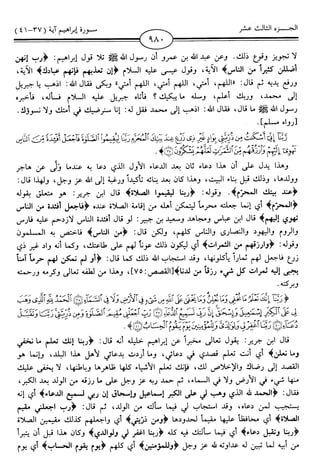 الجـــزء الثالث عشر
٩٨٠
سـورة إبراهيم آية (٣٧-٤١)
لا تجويز وقوع ذلك. وعن عبد الله بن عمرو أن رسول الله ﷺ تلا قول إبراهيم: ﴿رب إنهن
أضللن كثيراً من الناس﴾ الآية، وقول عيسى عليه السلام ﴿إن تعذبهم فإنهم عبادك﴾ الآية،
ورفع يديه ثم قال: «اللهم، أمتي، اللهم أمتي، اللهم أمتي» وبكى فقال الله: اذهب يا جبريل
إلى محمد، وربك أعلم، وسله ما يبكيك؟ فأتاه جبريل عليه السلام فسأله، فأخبره
رسول الله ﷺ ما قال، فقال الله: اذهب إلى محمد فقل له: إنا سنرضيك في أمتك ولا نسوؤك.
[رواه مسلم].
رَّبَّنَا إِنِّي أَسْكَنتُ مِن ذُرِّيَّتِي بِوَادٍ غَيْرِ ذِي زَرْعٍ عِندَ بَيْتِكَ الْمُحَرَّمِ رَبَّنَا لِيُقِيمُوا الصَّلَاةَ فَاجْعَلْ أَفْئِدَةً مِّنَ النَّاسِ
تَهْوِي إِلَيْهِمْ وَارْزُقْهُم مِّنَ الثَّمَرَاتِ لَعَلَّهُمْ يَشْكُرُونَ
وهذا يدل على أن هذا دعاء ثان بعد الدعاء الأول الذي دعا به عندما ولّى عن هاجر
وولدها، وذلك قبل بناء البيت، وهذا كان بعد بنائه تأكيداً ورغبة إلى الله عز وجل، ولهذا قال:
﴿عند بيتك المحرّم﴾. وقوله: ﴿ربنا ليقيموا الصلاة﴾ قال ابن جرير: هو متعلق بقوله
﴿المحرّم﴾ أي إنما جعلته محرماً ليتمكن أهله من إقامة الصلاة عنده ﴿فاجعل أفئدة من الناس
تهوي إليهم﴾ قال ابن عباس ومجاهد وسعيد بن جبير: لو قال أفئدة الناس لازدحم عليه فارس
والروم واليهود والنصارى والناس كلهم، ولكن قال: ﴿من الناس﴾ فاختص به المسلمون
وقوله: ﴿وارزقهم من الثمرات﴾ أي ليكون ذلك عوناً لهم على طاعتك، وكما أنه واد غير ذي
زرع فاجعل لهم ثماراً يأكلونها، وقد استجاب الله ذلك كما قال: ﴿أو لم نمكن لهم حرماً آمناً
يجبى إليه ثمرات كل شيء رزقاً من لدنا﴾[القصص:٥٧]، وهذا من لطفه تعالى وكرمه ورحمته
وبركته.
رَبَّنَا إِنَّكَ تَعْلَمُ مَا نُخْفِي وَمَا نُعْلِنُ وَمَا يَخْفَىٰ عَلَى اللَّهِ مِن شَيْءٍ فِي الْأَرْضِ وَلَا فِي السَّمَاءِ الْحَمْدُ لِلَّهِ الَّذِي وَهَبَ
لِي عَلَى الْكِبَرِ إِسْمَاعِيلَ وَإِسْحَاقَ إِنَّ رَبِّي لَسَمِيعُ الدُّعَاءِ رَبِّ اجْعَلْنِي مُقِيمَ الصَّلَاةِ وَمِن ذُرِّيَّتِي رَبَّنَا وَتَقَبَّلْ
دُعَاءِ رَبَّنَا اغْفِرْ لِي وَلِوَالِدَيَّ وَلِلْمُؤْمِنِينَ يَوْمَ يَقُومُ الْحِسَابُ
قال ابن جرير: يقول تعالى مخبراً عن إبراهيم خليله أنه قال: ﴿ربنا إنك تعلم ما نخفي
وما نعلن﴾ أي أنت تعلم قصدي في دعائي، وما أردت بدعائي لأهل هذا البلد، وإنما هو
القصد إلى رضاك والإخلاص لك، فإنك تعلم الأشياء كلها ظاهرها وباطنها، لا يخفى عليك
منها شيء في الأرض ولا في السماء، ثم حمد ربه عز وجل على ما رزقه من الولد بعد الكبر،
فقال: ﴿الحمد لله الذي وهب لي على الكبر إسماعيل وإسحاق إن ربي لسميع الدعاء﴾ أي إنه
يستجيب لمن دعاه، وقد استجاب لي فيما سألته من الولد، ثم قال: ﴿رب اجعلني مقيم
الصلاة﴾ أي محافظاً عليها مقيماً لحدودها ﴿ومن ذريتي﴾ أي واجعلهم كذلك مقيمين الصلاة
﴿ربنا وتقبل دعاء﴾ أي فيما سألتك فيه كله ﴿ربنا اغفر لي ولوالديّ﴾ وكان هذا قبل أن يتبرأ
من أبيه لما تبين له عداوته لله عز وجل ﴿وللمؤمنين﴾ أي كلهم ﴿يوم يقوم الحساب﴾ أي يوم